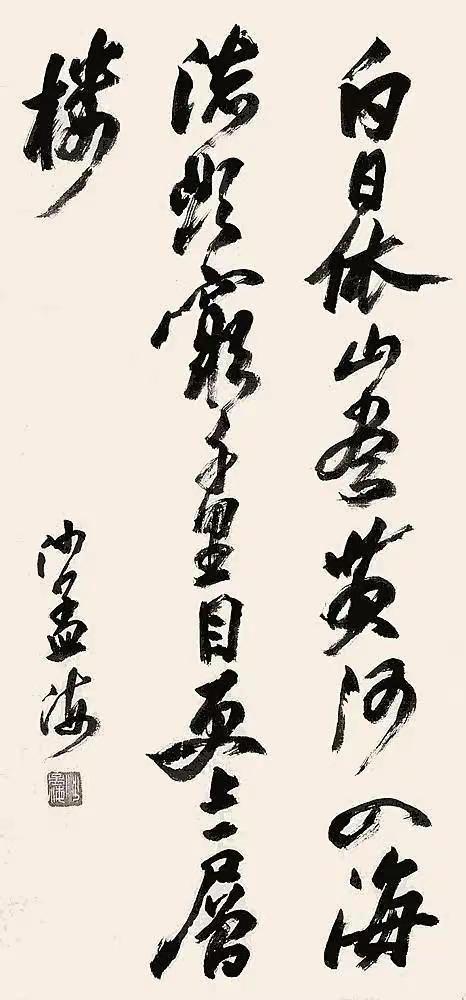 白日依山盡黄河入海
流欲窮千里目更上一層
樓
沙孟海